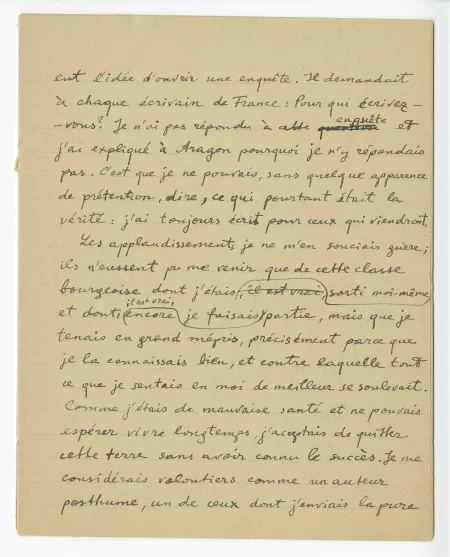 eut l'idée d'ouvrir une enquête. Il demandait
à chaque écrivain de France : Pour qui écrivez-
-vous? Je n'ai pas répondu à cette question enquête et
j'ai expliqué à Aragon pourquoi je n'y répondais
pas. C'est que je ne pouvais, sans quelque apparence
de prétention, dire, ce qui pourtant était la
vérité : j'ai toujours écrit pour ceux qui viendront.
Les applaudissements, je ne m'en souciais guère ;
ils n'eussent pu me venir que de cette classe
bourgeoise dont j'étais, il est vrai, sorti moi-même
il est vrai,
et dont (encore je faisais) partie, mais que je
tenais en grand mépris, précisément parce que
je la connaissais bien, et contre laquelle tout
ce que je sentais en moi de meilleur se soulevait.
Comme j'étais de mauvaise santé et ne pouvais
espérer vivre longtemps, j'acceptais de quitter
cette terre sans avoir connu le succès. Je me
considérais volontiers comme un auteur
posthume, un de ceux dont j'enviais la pure